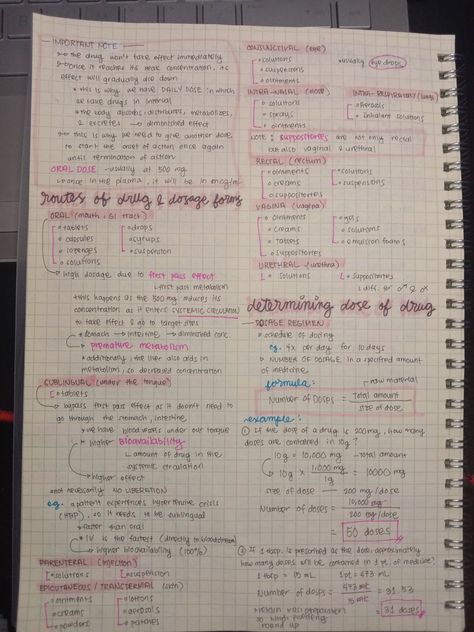 IMPORTANT NOTE
the drug won't take effect immediately
once it reaches its peak concentration, its
effect will gradually die down
this is why we have DAILY DOSE in which
we have drugs in interval
the body absorbs, distributes, metabolizes,
& excretes → diminished effect
this is why we need to give another dose
to start the onset of action once again
until termination of action
ORAL DOSE - usually at 500 mg
once in the plasma, it will be in mcg/ml
routes of drug & dosage forms
ORAL (mouth, GI tract)
tablets
capsules
lozenges
solutions
drops
syrups
suspension
High dosage due to first pass effect
first pass metabolism
this happens as the 500 mg reduces its
concentration as it enters SYSTEMIC CIRCULATION
to take effect & go to target sites
stomach → intestine → diminished conc.
premature metabolism
additionally, the liver also aids in
metabolism, so decreased concentration
SUBLINGUAL (under the tongue)
tablets
bypass first pass effect as it doesn't need to
go through the stomach, intestine
we have blood vessels under our tongue
higher bioavailability
amount of drug in the
systemic circulation
higher effect
not necessarily NO LIBERATION
e.g. a patient experiences hypertensive crisis
(HBP), so it needs to be sublingual
faster than oral
IV is the fastest (directly to bloodstream)
higher bioavailability (100%)
PARENTERAL (injection)
solutions
suspension
EPICUTANEOUS / TRANSDERMAL (skin)
ointments
creams
powders
lotions
aerosols
patches
CONJUNCTIVAL (eye)
solutions
suspensions
ointments
usually eye drops
INTRA-NASAL (nose)
solutions
sprays
ointments
INTRA-RESPIRATORY (lungs)
aerosols
inhalant solutions
NOTE: suppositories are not only rectal
but also vaginal & urethral
RECTAL (rectum)
ointments
creams
suppositories
solutions
suspensions
VAGINA (vagina)
ointments
creams
tablets
suppositories
gels
solutions
emulsion foams
URETHRAL (urethra)
solutions
suppositories
diff. for ♂ & ♀
determining dose of drug
DOSAGE REGIMEN
schedule of dosing
eg. 4x per day for 10 days
NUMBER OF DOSAGE in a specified amount
of medicine
formula:
raw material
Number of Doses = total amount
size of dose
example:
① If the dose of a drug is 200mg, how many
doses are contained in 10g?
10g = 10,000 mg → total amount
10g x 1,000 mg = 10000 mg
1g
size of dose → 200 mg/dose
Number of doses = 10,000 mg
200 mg/dose
= 50 doses
② If 1 tbsp is prescribed as the dose, approximately
how many doses will be contained in 1 pt of medicine?
1 tbsp = 15 mL
1 pt = 473 mL
Number of doses = 473 mL = 31.53
15 mL
= 31 doses
round up